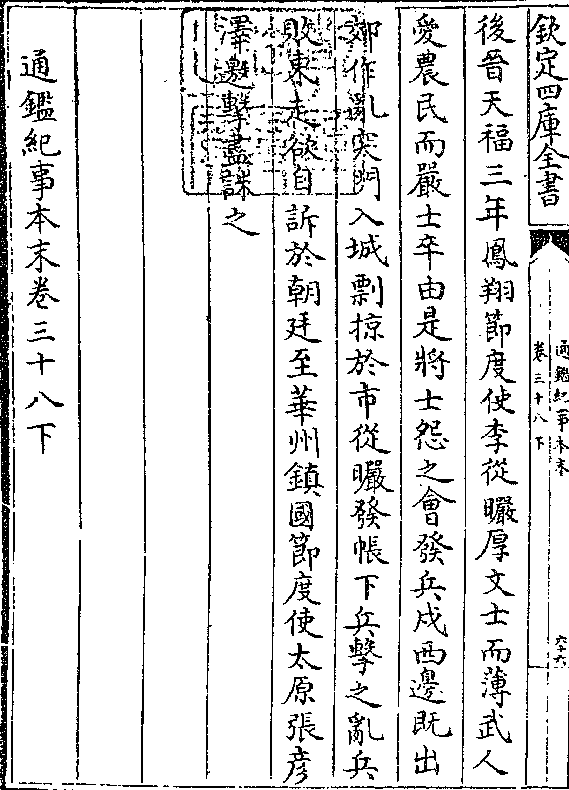 欽定四庫全書
通鑑紀事本末
卷三十八下
六十六
後晉天福三年鳳翔節度使李從曮厚文士而薄武人
愛農民而嚴士卒由是將士怨之會發兵戍西邊既出
郊作亂突門入城剽掠於市從曮發帳下兵擊之亂兵
敗東走欲自訴於朝廷至華州鎮國節度使太原張彦
澤邀擊盡誅之
通鑑紀事本末卷三十八下